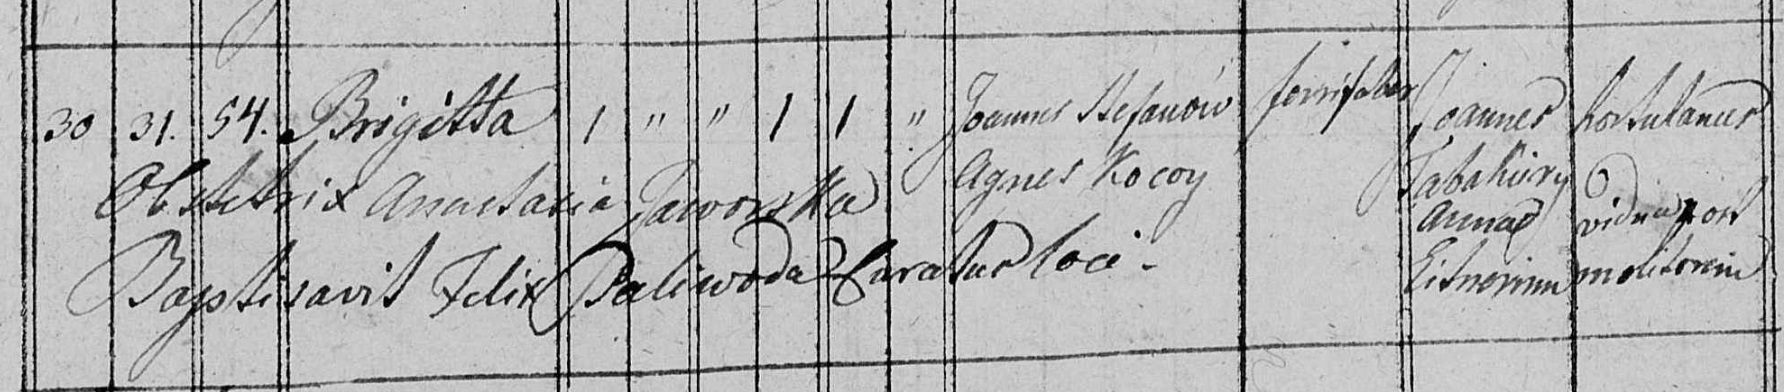 30 31. 54. Brigitta 1 " " 1 1 " Joannes Stefanów ferrifaber Joannes hortulanus
Obstetrix Anastasia Jaworska Agnes Kocoy Tabakiury
Annae vidua post
Baptisavit Felix Paliwoda Curatus loci - Eitnerinn molitorem